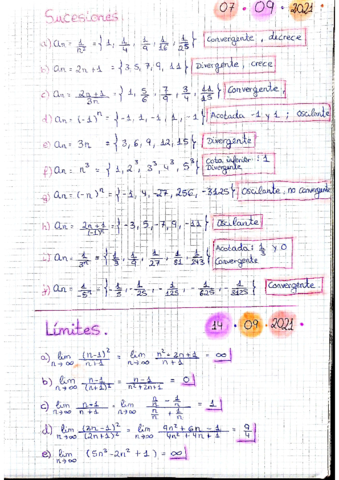 Sucesiones 07 · 09 · 2021 ·
a) an = 1/n² = {1, 1/4, 1/9, 1/16, 1/25} Convergente, decrece
b) an = 2n + 1 = {3, 5, 7, 9, 11} Divergente, crece
c) an = 2n+1/3n = {1, 5/6, 7/9, 3/4, 11/15} Convergente,
d) an = (-1)ⁿ = {-1, 1, -1, 1, -1} Acotada -1 y 1; Oscilante
e) an = 3n = {3, 6, 9, 12, 15} Divergente
f) an = n³ = {1, 2³, 3³, 4³, 5³} Cota inferior: 1 Divergente
g) an = (-n)ⁿ = {-1, 4, -27, 256, -3125} Oscilante, no convergente
h) an = 2n+1/(-1)ⁿ = {-3, 5, -7, 9, -11} Oscilante
i) an = 1/3ⁿ = {1/3, 1/9, 1/27, 1/81, 1/243} Acotada: 1/3 y 0 Convergente
j) an = 1/-5ⁿ = {-1/5, -1/25, -1/125, -1/625, -1/3125} Convergente
Límites. 14 · 09 · 2021 ·
a) lim n→∞ (n-1)²/n+1 = lim n→∞ n²+2n+1/n+1 = ∞
b) lim n→∞ n-1/(n+1)² = n-1/n²+2n+1 = 0
c) lim n→∞ n-1/n+1 = lim n→∞ n/n - 1/n / n/n + 1/n = 1
d) lim n→∞ (3n-1)²/(2n+1)² = lim n→∞ 9n²+6n-1/4n²+4n+1 = 9/4
e) lim n→∞ (5n³-2n²+1) = ∞